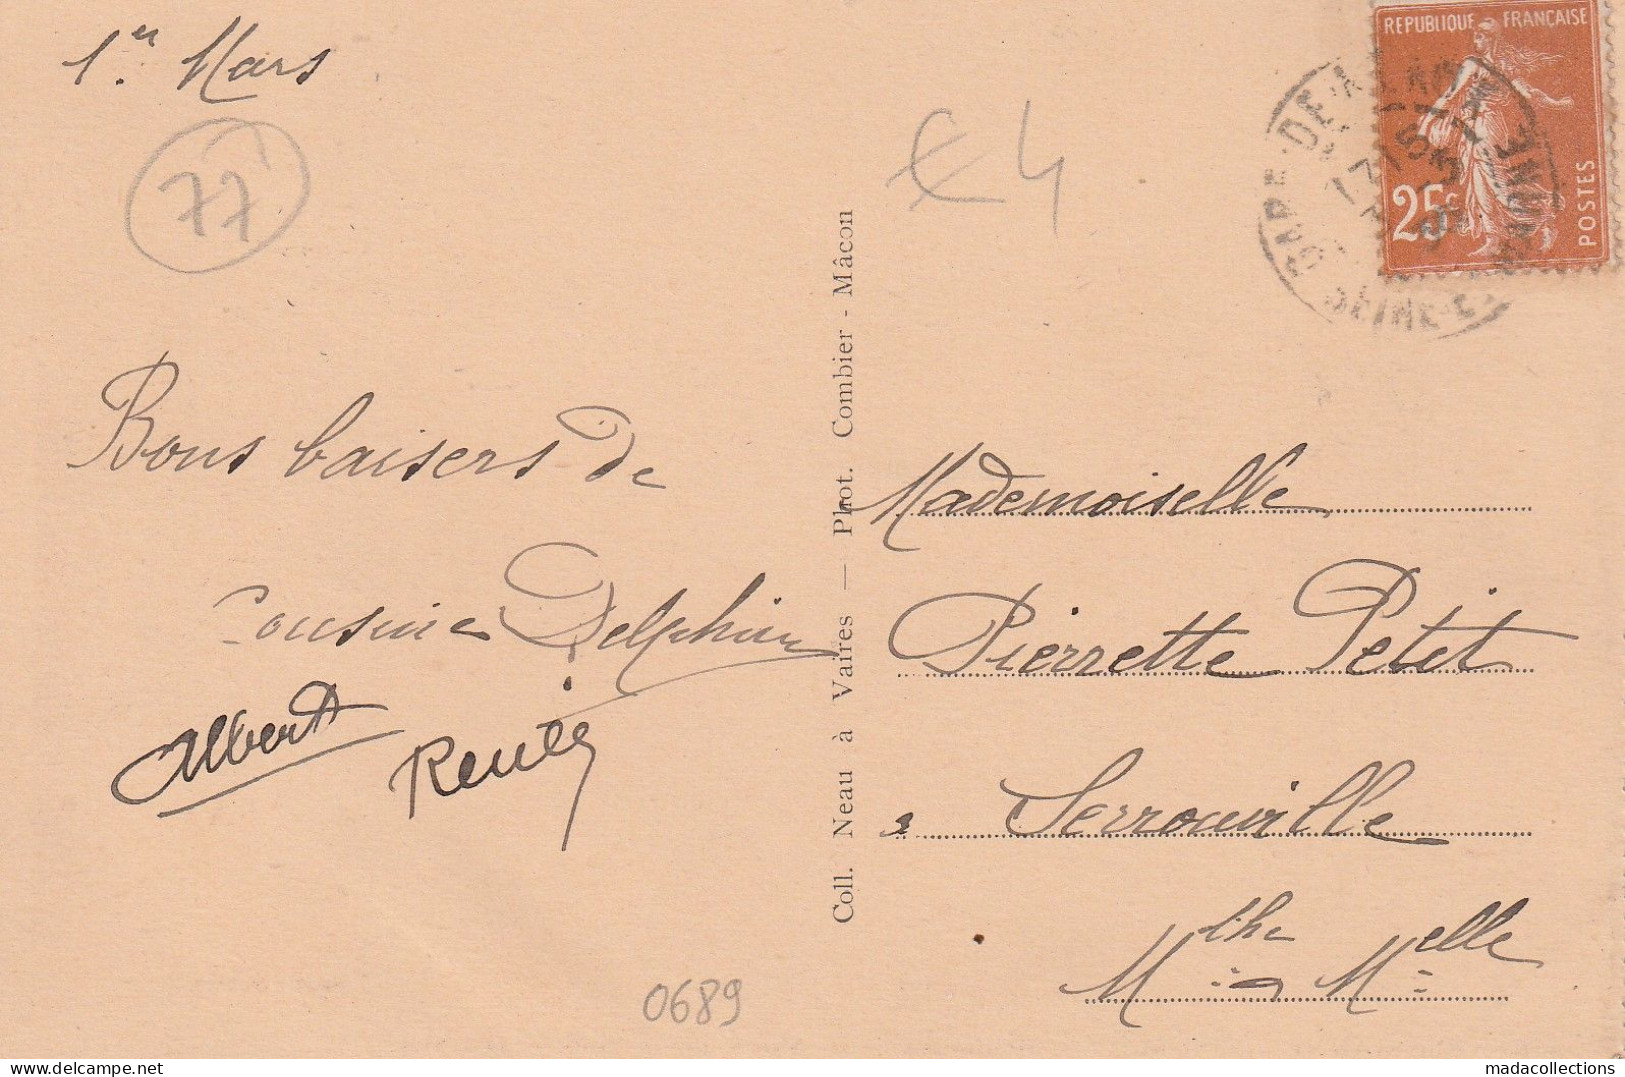 1er Mars
77
€4
REPUBLIQUE FRANÇAISE
25c
POSTES
GARE DE
17 15
SEINE-E MARNE
Bons baisers de
Cousine Delphine
Albert Renée
Coll. Neau à Vaires — Phot. Combier - Mâcon
Mademoiselle
Pierrette Petit
à Serrouville
Mthe & Melle
0689
madacollections